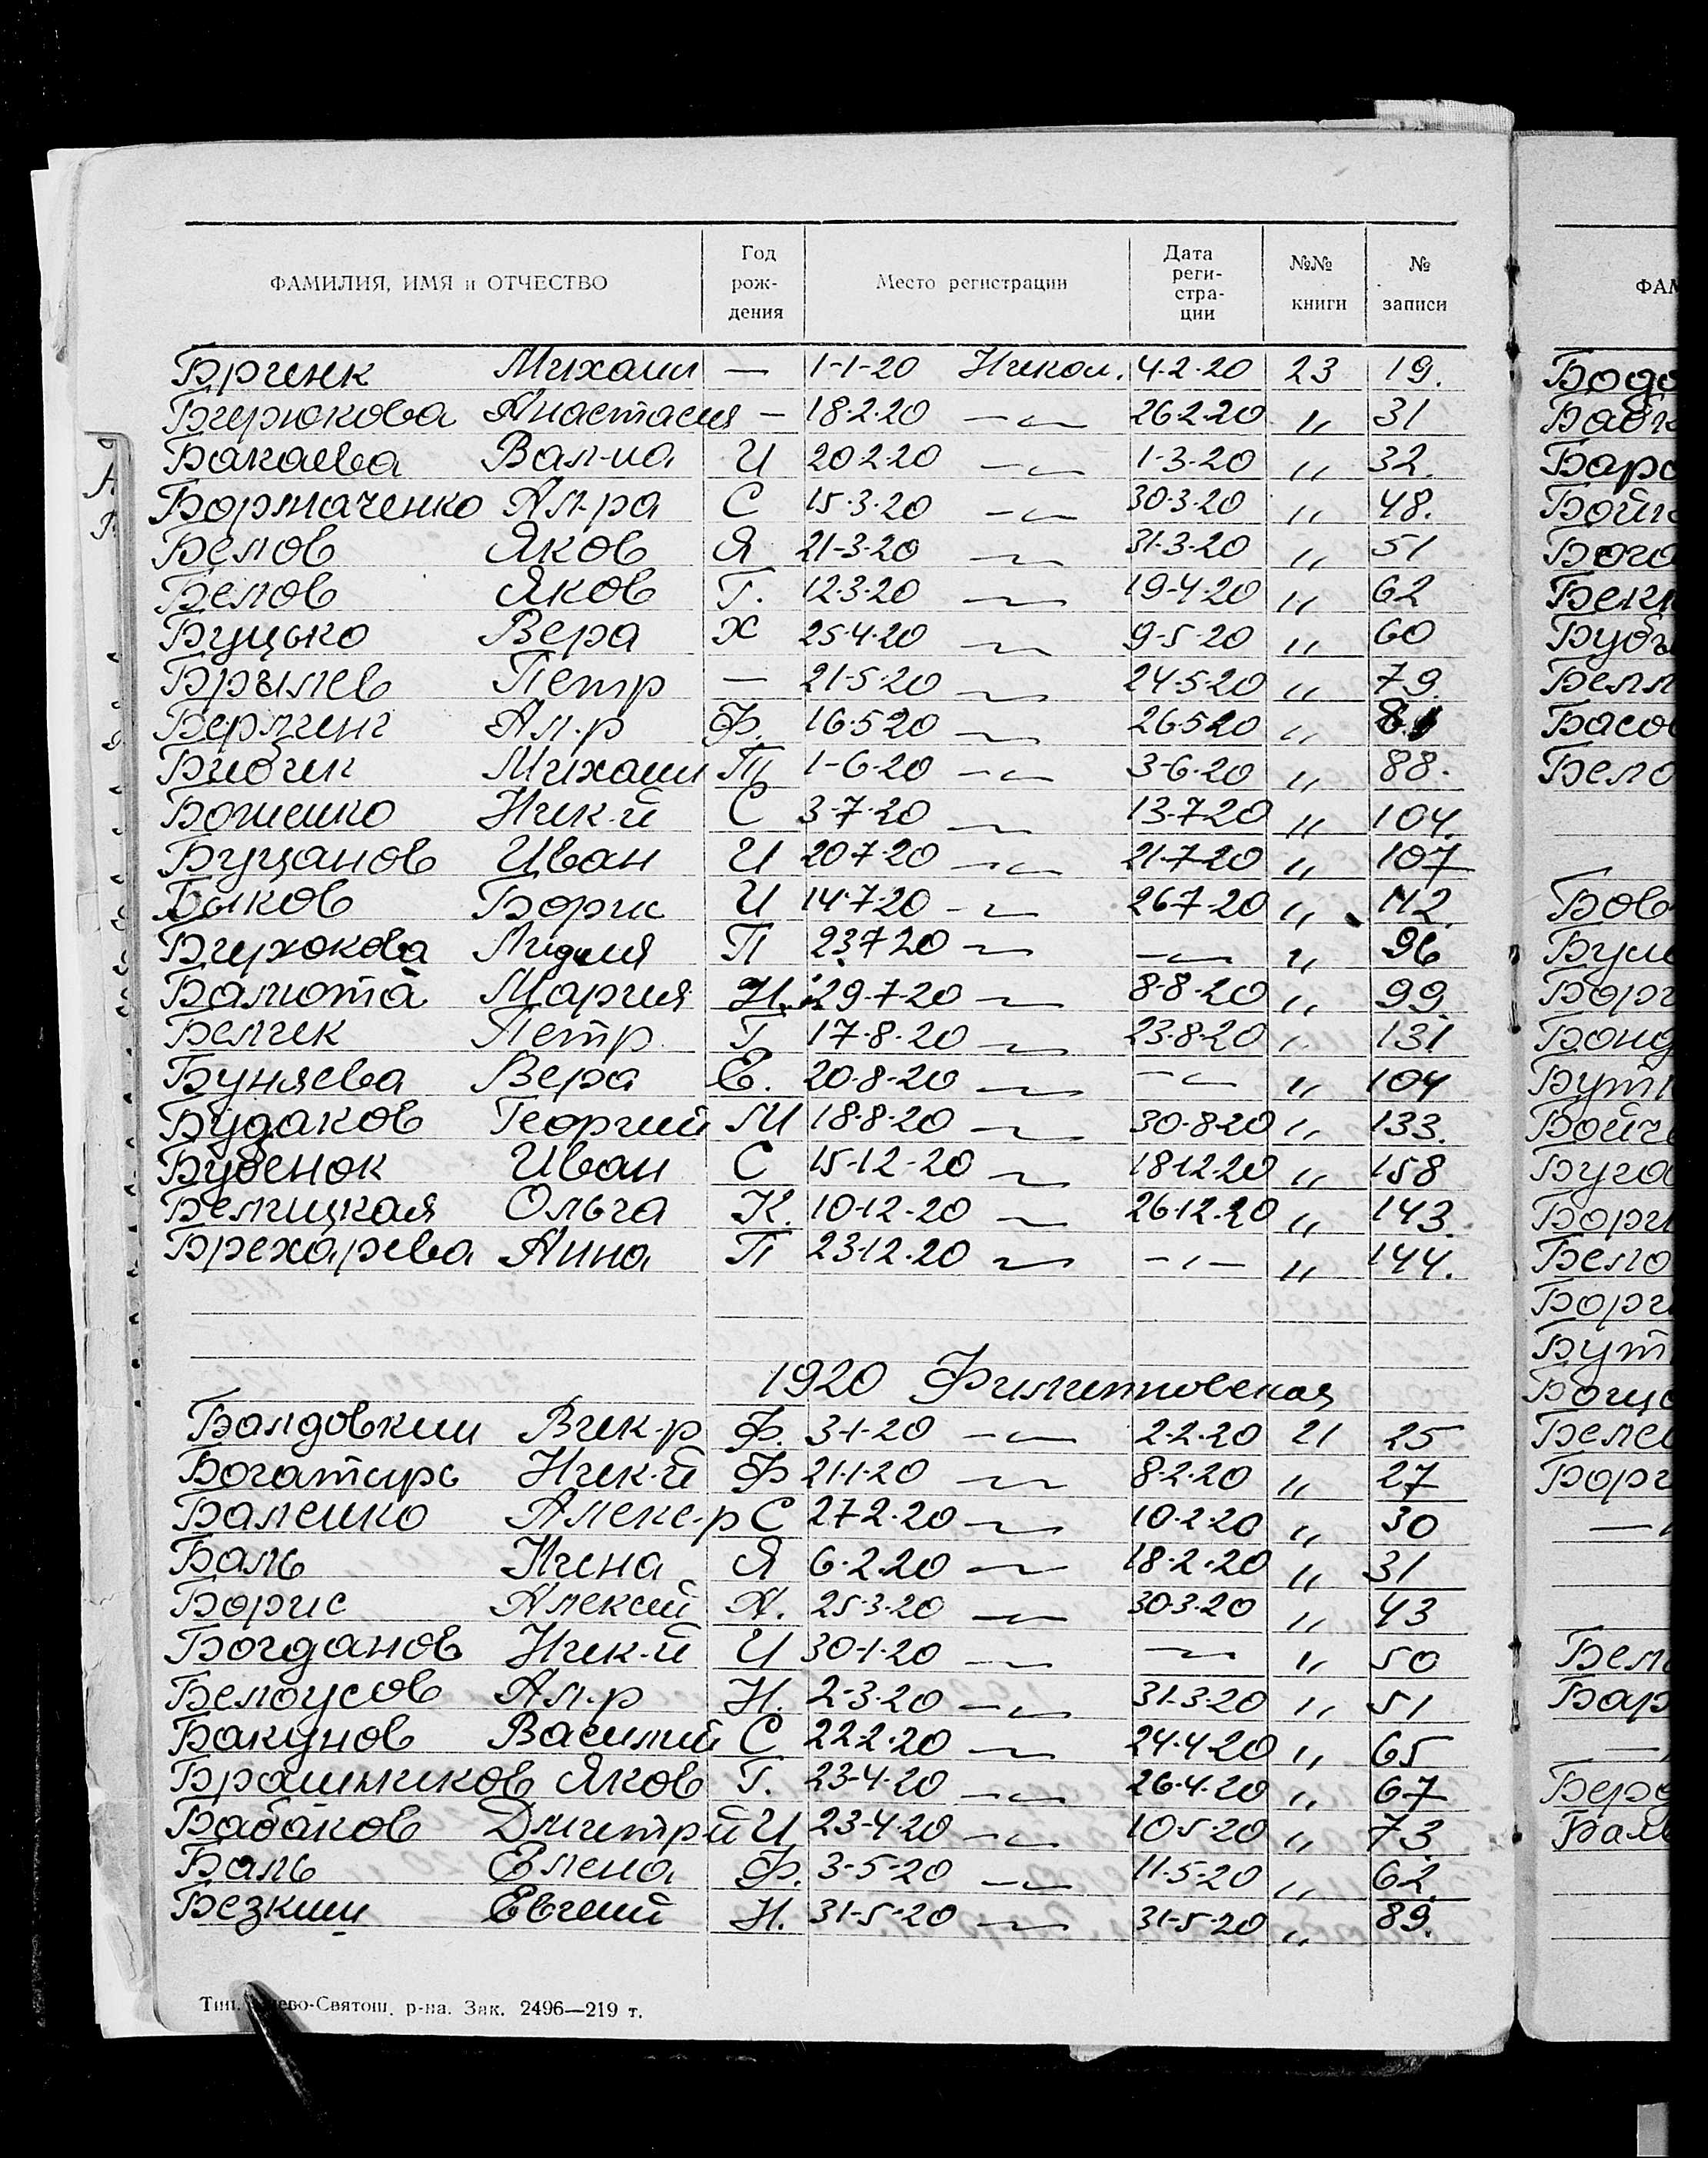 ФАМИЛИЯ, ИМЯ и ОТЧЕСТВО Год рож-дения Место регистрации Дата реги-стра-ции №№ книги № записи
Михаил — 1-1-20 Никол. 4.2.20 23 19.
Бирюкова Анастасия — 18.2.20 —〃— 26.2.20 〃 31
Бакаева Вал-на И 20.2.20 —〃— 1-3-20 〃 32.
Борначенко Ал-ра С 15.3.20 —〃— 30.3.20 〃 48.
Белов Яков Я 21-3-20 —〃— 31.3.20 〃 51
Белов Яков Г. 12.3.20 —〃— 19-4-20 〃 62
Буцько Вера Х 25.4.20 —〃— 9-5-20 〃 60
Брылев Петр — 21-5-20 —〃— 24.5.20 〃 79.
Ал-р Ф. 16.5.20 —〃— 26.5.20 〃
Бибик Михаил П 1-6-20 —〃— 3-6-20 〃 88.
Боженко Ник-й С 3-7-20 —〃— 13.7.20 〃 104.
Буцанов Иван И 20.7.20 —〃— 21.7.20 〃 107
Быков Борис И 14.7.20 —〃— 26.7.20 〃 112.
Бирюкова Лидия П 23.7.20 —〃— —〃— 〃 96
Балюта Мария Н. 29.7.20 —〃— 8.8.20 〃 99.
Белик Петр Г. 17.8.20 —〃— 23.8.20 〃 131
Буняева Вера Е. 20.8.20 —〃— —〃— 〃 104
Будаков Георгий М 18.8.20 —〃— 30.8.20 〃 133.
Бубенок Иван С 15-12-20 —〃— 18.12.20 〃 158
Белицкая Ольга К. 10.12.20 —〃— 26.12.20 〃 143.
Брехарева Анна П 23.12.20 —〃— —〃— 〃 144.
1920 Филипповская
Балдовкин Вик-р Ф. 3-1-20 —〃— 2.2.20 21 25
Богатырь Ник-й Ф 21.1.20 —〃— 8.2.20 〃 27
Баленко Алекс-р С 27.2.20 —〃— 10.2.20 〃 30
Баль Нина Я 6.2.20 —〃— 18.2.20 〃 31
Борис Алексей А. 25.3.20 —〃— 30.3.20 〃 43
Богданов Ник-й И 30-1-20 —〃— —〃— 〃 50
Белоусов Ал-р Н. 2-3.20 —〃— 31.3.20 〃 51
Бакунов Василий С 22.2.20 —〃— 24.4.20 〃 65
Брашников Яков Г. 23-4-20 —〃— 26.4.20 〃 67
Бабаков Дмитрий И 23-4-20 —〃— 10.5.20 〃 73.
Баль Елена Ф. 3-5-20 —〃— 11.5.20 〃 62.
Безкиш Евгений Н. 31-5-20 —〃— 31-5-20 〃 89.
р-на. Зак. 2496—219 т.